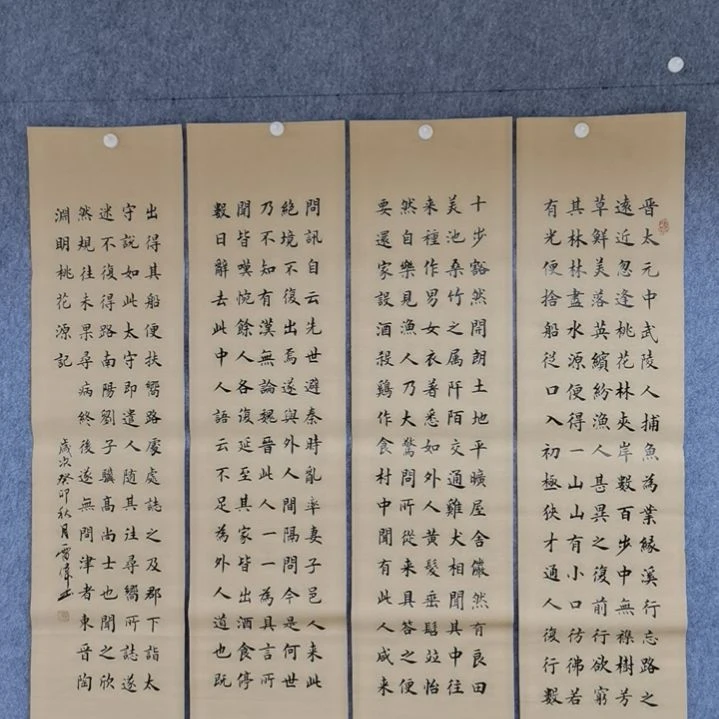 晋太元中武陵人捕魚為業緣溪行忘路之
遠近忽逢桃花林夾岸數百步中無襍樹芳
草鮮美落英繽紛漁人甚異之復前行欲窮
其林林盡水源便得一山山有小口彷彿若
有光便捨船從口入初極狹才通人復行數
十步豁然開朗土地平曠屋舍儼然有良田
美池桑竹之属阡陌交通雞犬相聞其中往
来種作男女衣著悉如外人黄髮垂髫竝怡
然自樂見漁人乃大驚問所從来具答之便
要還家設酒殺鷄作食村中聞有此人咸来
問訊自云先世避秦時亂率妻子邑人来此
絶境不復出焉遂與外人間隔問今是何世
乃不知有漢無論魏晉此人一一為具言所
聞皆嘆惋餘人各復延至其家皆出酒食停
數日辭去此中人語云不足為外人道也既
出得其船便扶嚮路處處誌之及郡下詣太
守説如此太守即遣人随其往尋嚮所誌遂
迷不復得路南陽劉子驥高尚士也聞之欣
然規往未果尋病終後遂無問津者東晉陶
淵明桃花源記
歲次癸卯秋月